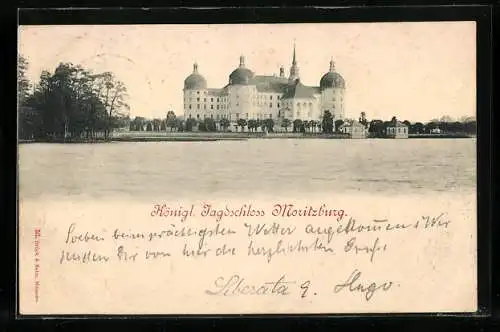 Königl. Jagdschloss Moritzburg.
Soeben beim prächtigsten Wetter angekommen. Wir
senden Dir von hier die herzlichsten Grüße
Liberata &. Hugo.